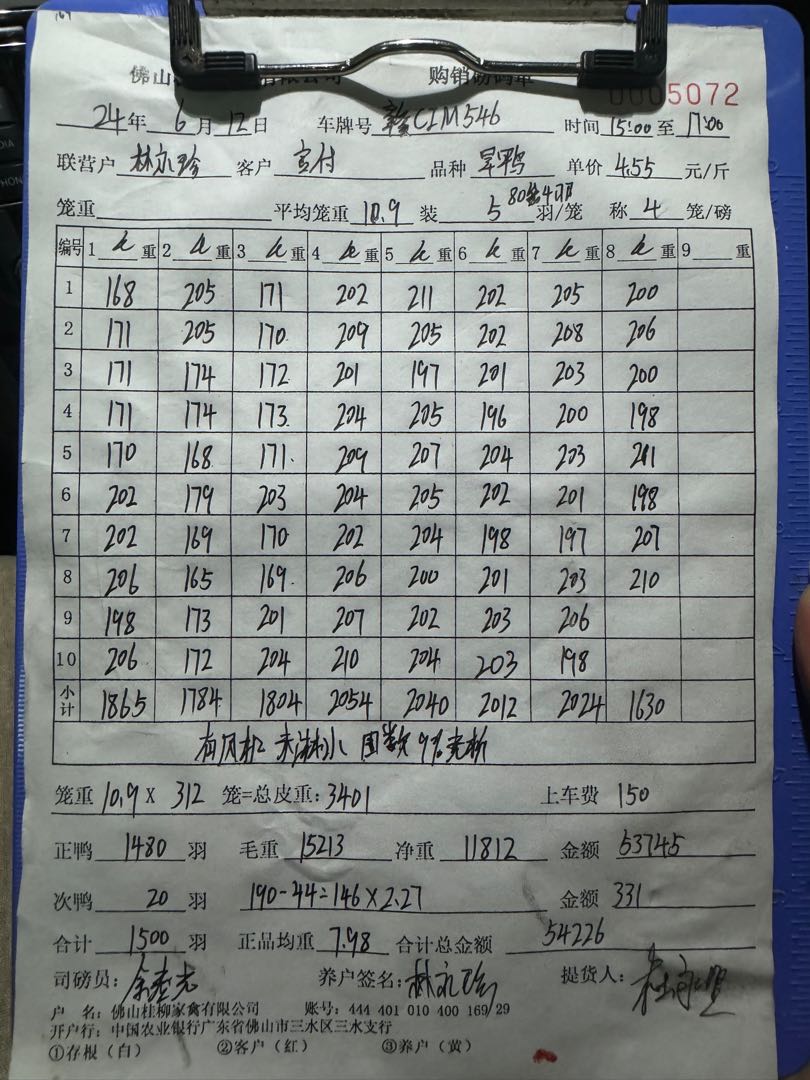 佛山 有限公司 购销磅码单 0005072
24年 6月 12日 车牌号 赣CIM546 时间 15:00 至 17:00
联营户 林永珍 客户 品种 旱鸭 单价 4.55 元/斤
80笼4羽
笼重 平均笼重 10.9 装 5 羽/笼 称 4 笼/磅
编号 1 重 2 重 3 重 4 重 5 重 6 重 7 重 8 重 9 重
1 168 205 171 202 211 202 205 200
2 171 205 170 209 205 202 208 206
3 171 174 172 201 197 201 203 200
4 171 174 173 204 205 196 200 198
5 170 168 171 209 207 204 203 211
6 202 179 203 204 205 202 201 198
7 202 169 170 202 204 198 197 207
8 206 165 169 206 200 201 203 210
9 198 173 201 207 202 203 206
10 206 172 204 210 204 203 198
小计 1865 1784 1804 2054 2040 2012 2024 1630
有风机 未淋水
笼重 10.9 X 312 笼=总皮重: 3401 上车费 150
正鸭 1480 羽 毛重 15213 净重 11812 金额 53745
次鸭 20 羽 190-44=146X2.27 金额 331
合计 1500 羽 正品均重 7.98 合计总金额 54226
司磅员: 养户签名: 林永珍 提货人:
户 名: 佛山桂柳家禽有限公司 账号: 444 401 010 400 169 29
开户行: 中国农业银行广东省佛山市三水区三水支行
①存根(白) ②客户(红) ③养户(黄)